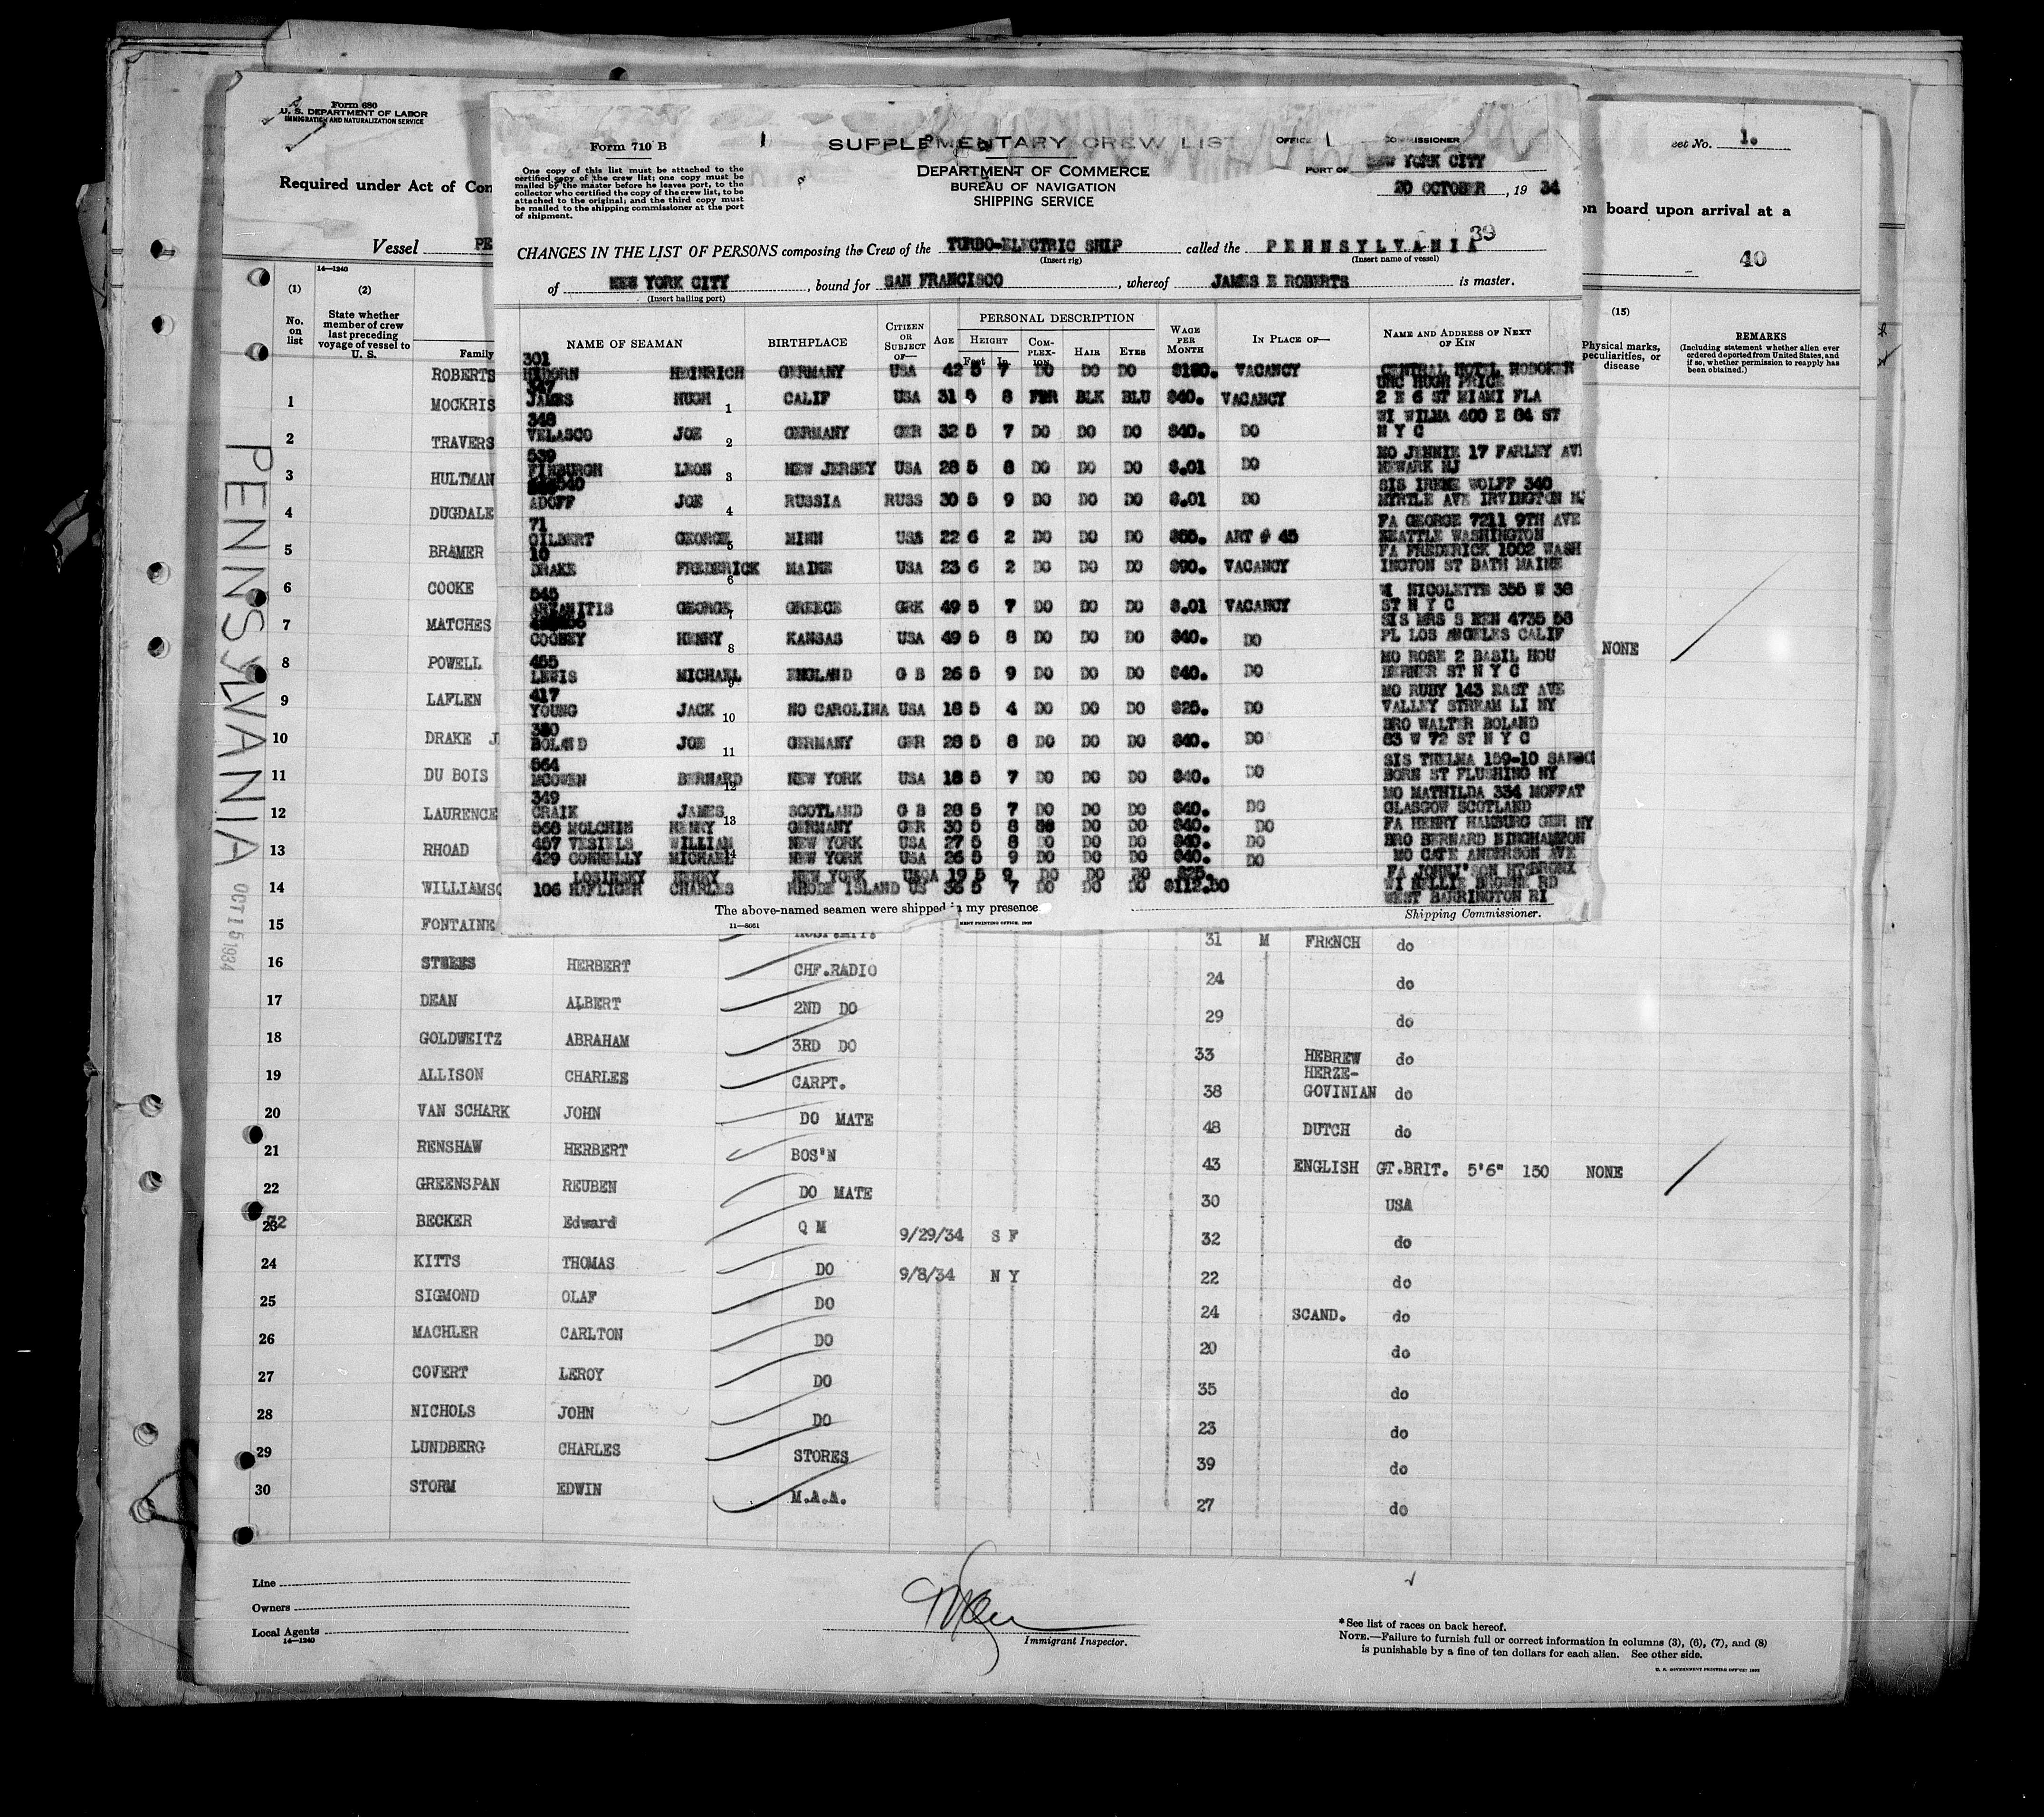 Form 680
U. S. DEPARTMENT OF LABOR
IMMIGRATION AND NATURALIZATION SERVICE
Required under Act of Con
Vessel PE
Form 710 B
One copy of this list must be attached to the
certified copy of the crew list; one copy must be
mailed by the master before he leaves port, to the
collector who certified the copy of the crew list, to be
attached to the original; and the third copy must
be mailed to the shipping commissioner at the port
of shipment.
SUPPLEMENTARY CREW LIST
DEPARTMENT OF COMMERCE
BUREAU OF NAVIGATION
SHIPPING SERVICE
OFFICE COMMISSIONER
PORT OF NEW YORK CITY
20 OCTOBER, 1934
eet No. 1.
on board upon arrival at a
40
39
CHANGES IN THE LIST OF PERSONS composing the Crew of the TURBO-ELECTRIC SHIP called the PENNSYLVANIA
(Insert rig) (Insert name of vessel)
of NEW YORK CITY, bound for SAN FRANCISCO, whereof JAMES E ROBERTS is master.
(Insert hailing port)
NAME OF SEAMAN BIRTHPLACE CITIZEN OR SUBJECT OF— AGE PERSONAL DESCRIPTION HEIGHT Feet In. COMPLEXION HAIR EYES WAGE PER MONTH IN PLACE OF— NAME AND ADDRESS OF NEXT OF KIN
301
HEINRICH GERMANY USA 42 5 7 DO DO DO VACANCY CENTRAL HOTEL HOBOKEN
347 UNC HUGH PRICE
JAMES HUGH 1 CALIF USA 31 5 8 BLK BLU $40. VACANCY 2 E 6 ST MIAMI FLA
348 WI WILMA 400 E 84 ST
VELASCO JOE 2 GERMANY GER 32 5 7 DO DO DO $40. DO N Y C
539 MO JENNIE 17 FARLEY AVE
FINBURGH LEON 3 NEW JERSEY USA 28 5 8 DO DO DO $.01 DO NEWARK NJ
540 SIS IRENE WOLFF 340
ADOFF JOE 4 RUSSIA RUSS 30 5 9 DO DO DO $.01 DO MYRTLE AVE IRVINGTON NJ
71 FA GEORGE 7211 9TH AVE
GILBERT GEORGE 5 MINN USA 22 6 2 DO DO DO ART # 45 SEATTLE WASHINGTON
10 FA FREDERICK 1002 WASH
DRAKE FREDERICK 6 MAINE USA 23 6 2 DO DO DO $90. VACANCY INGTON ST BATH MAINE
545 NICOLETTE 355 W 38
ARZANITIS GEORGE 7 GREECE GRK 49 5 7 DO DO DO $.01 VACANCY ST N Y C
SIS MRS S KEN 4735 58
COONEY HENRY 8 KANSAS USA 49 5 8 DO DO DO $40. DO PL LOS ANGELES CALIF
455 MO ROSE 2 BASIL HOU
LEWIS MICHAEL 9 ENGLAND G B 26 5 9 DO DO DO $40. DO BERNER ST N Y C
417 MO RUBY 143 EAST AVE
YOUNG JACK 10 NO CAROLINA USA 18 5 4 DO DO DO $25. DO VALLEY STREAM LI NY
380 BRO WALTER BOLAND
BOLAND JOE 11 GERMANY GER 28 5 8 DO DO DO $40. DO 83 W 72 ST N Y C
564 SIS THELMA 159-10
MCOWEN BERNARD 12 NEW YORK USA 18 5 7 DO DO DO $40. DO BORN ST FLUSHING NY
349 MO MATHILDA 334 MOFFAT
CRAIK JAMES 13 SCOTLAND G B 28 5 7 DO DO DO $40. DO GLASGOW SCOTLAND
568 MOLCHIN HENRY GERMANY GER 30 5 8 DO DO $40. DO FA HENRY HAMBURG GER NY
457 VESIELS WILLIAM NEW YORK USA 27 5 8 DO DO DO $40. DO BRO BERNARD BINGHAMTON
429 CONNELLY MICHAEL 14 NEW YORK USA 26 5 9 DO DO DO $40. DO MO CATE ANDERSON AVE
LOSINSKY HENRY NEW YORK USA 19 5 9 DO DO DO $25.
106 HAFLIGER CHARLES RHODE ISLAND US 36 5 7 DO DO DO $112.50 WI NELLIE BROWNE RD
WEST BARRINGTON RI
The above-named seamen were shipped in my presence
Shipping Commissioner.
11—8051
14—1240
(1) (2) (15)
No. on list
State whether member of crew last preceding voyage of vessel to U. S.
Family
Physical marks, peculiarities, or disease
REMARKS
(Including statement whether alien ever ordered deported from United States, and if so, whether permission to reapply has been obtained.)
ROBERTS
1 MOCKRIS
2 TRAVERS
3 HULTMAN
4 DUGDALE
5 BRAMER
6 COOKE
7 MATCHES NONE
8 POWELL
9 LAFLEN
10 DRAKE J
11 DU BOIS
12 LAURENCE
13 RHOAD
14 WILLIAMSO
15 FONTAINE 31 M FRENCH do
16 STEES HERBERT CHF.RADIO 24 do
17 DEAN ALBERT 2ND DO 29 do
18 GOLDWEITZ ABRAHAM 3RD DO 33 HEBREW do
19 ALLISON CHARLES CARPT. 38 HERZE-GOVINIAN do
20 VAN SCHARK JOHN DO MATE 48 DUTCH do
21 RENSHAW HERBERT BOS'N 43 ENGLISH GT.BRIT. 5'6" 150 NONE
22 GREENSPAN REUBEN DO MATE 30 USA
23 BECKER Edward Q M 9/29/34 S F 32 do
24 KITTS THOMAS DO 9/8/34 N Y 22 do
25 SIGMOND OLAF DO 24 SCAND. do
26 MACHLER CARLTON DO 20 do
27 COVERT LEROY DO 35 do
28 NICHOLS JOHN DO 23 do
29 LUNDBERG CHARLES STORES 39 do
30 STORM EDWIN M.A.A. 27 do
PENNSYLVANIA
OCT 15 1934
Line
Owners
Local Agents
14—1240
Immigrant Inspector.
*See list of races on back hereof.
NOTE.—Failure to furnish full or correct information in columns (3), (6), (7), and (8)
is punishable by a fine of ten dollars for each alien. See other side.
U. S. GOVERNMENT PRINTING OFFICE